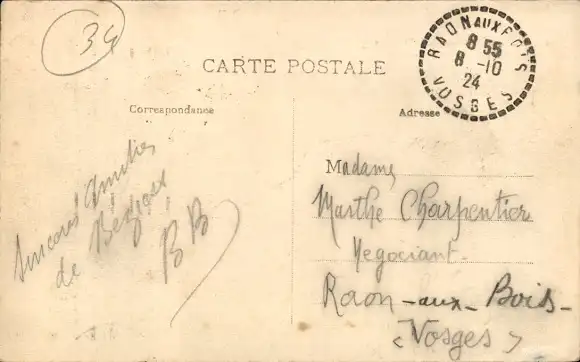 34
CARTE POSTALE
RAON AUX BOIS
8 55
8 -10
24
VOSGES
Correspondance
Adresse
Sincères Amitiés
de
BB
Madame
Marthe Charpentier
Negociant
Raon-aux-Bois-
<Vosges>